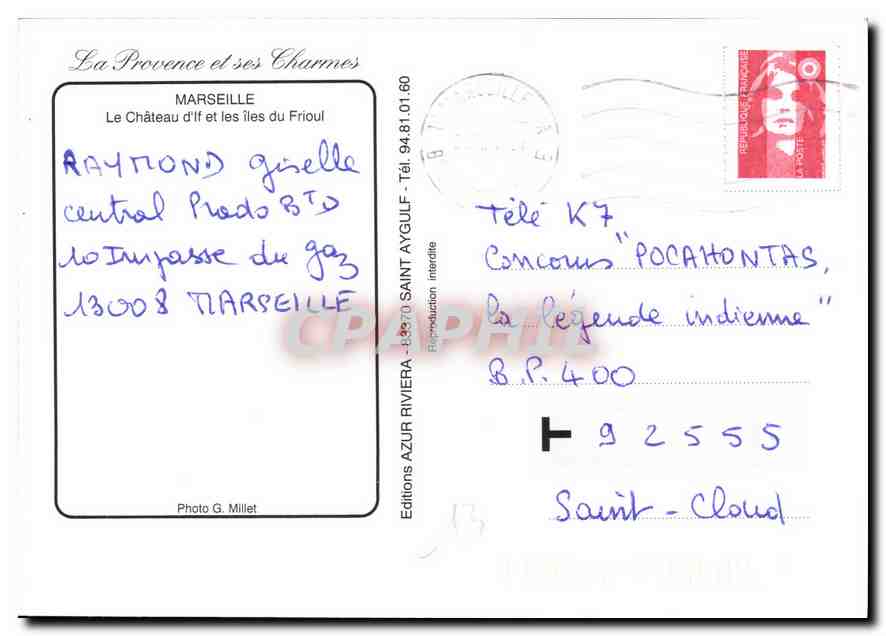 La Provence et ses Charmes
MARSEILLE
Le Château d'If et les îles du Frioul
RAYMOND Giselle
central Prado BTD
10 Impasse du gaz
13008 MARSEILLE
Photo G. Millet
Editions AZUR RIVIERA - 83370 SAINT AYGULF - Tél. 94.81.01.60
Reproduction interdite
MARSEILLE
RÉPUBLIQUE FRANÇAISE
LA POSTE
Télé K7
Concours "POCAHONTAS,
la légende indienne"
B.P. 400
T 92555
Saint-Cloud
13
CPAPHIL